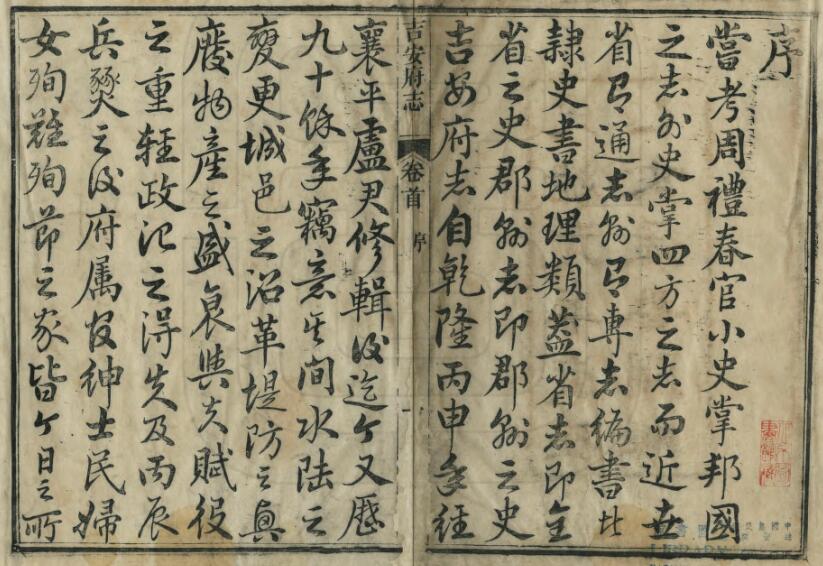 序
當考周禮春官小史掌邦國
之志外史掌四方之志而近世
省有通志縣有專志編書比
隸史書地理類蓋省志即全
省之史郡縣志即郡縣之史
吉安府志自乾隆丙申年經
吉安府志 卷首 序 一
襄平盧尹修輯後迄今又歷
九十餘年竊意其間水陸之
變更城邑之沿革堤防之置
廢物產之盛衰與夫賦役
之重輕政治之得失及丙辰
兵燹之後府属官紳士民婦
女殉難殉節之家皆今日之所
LIBRARY